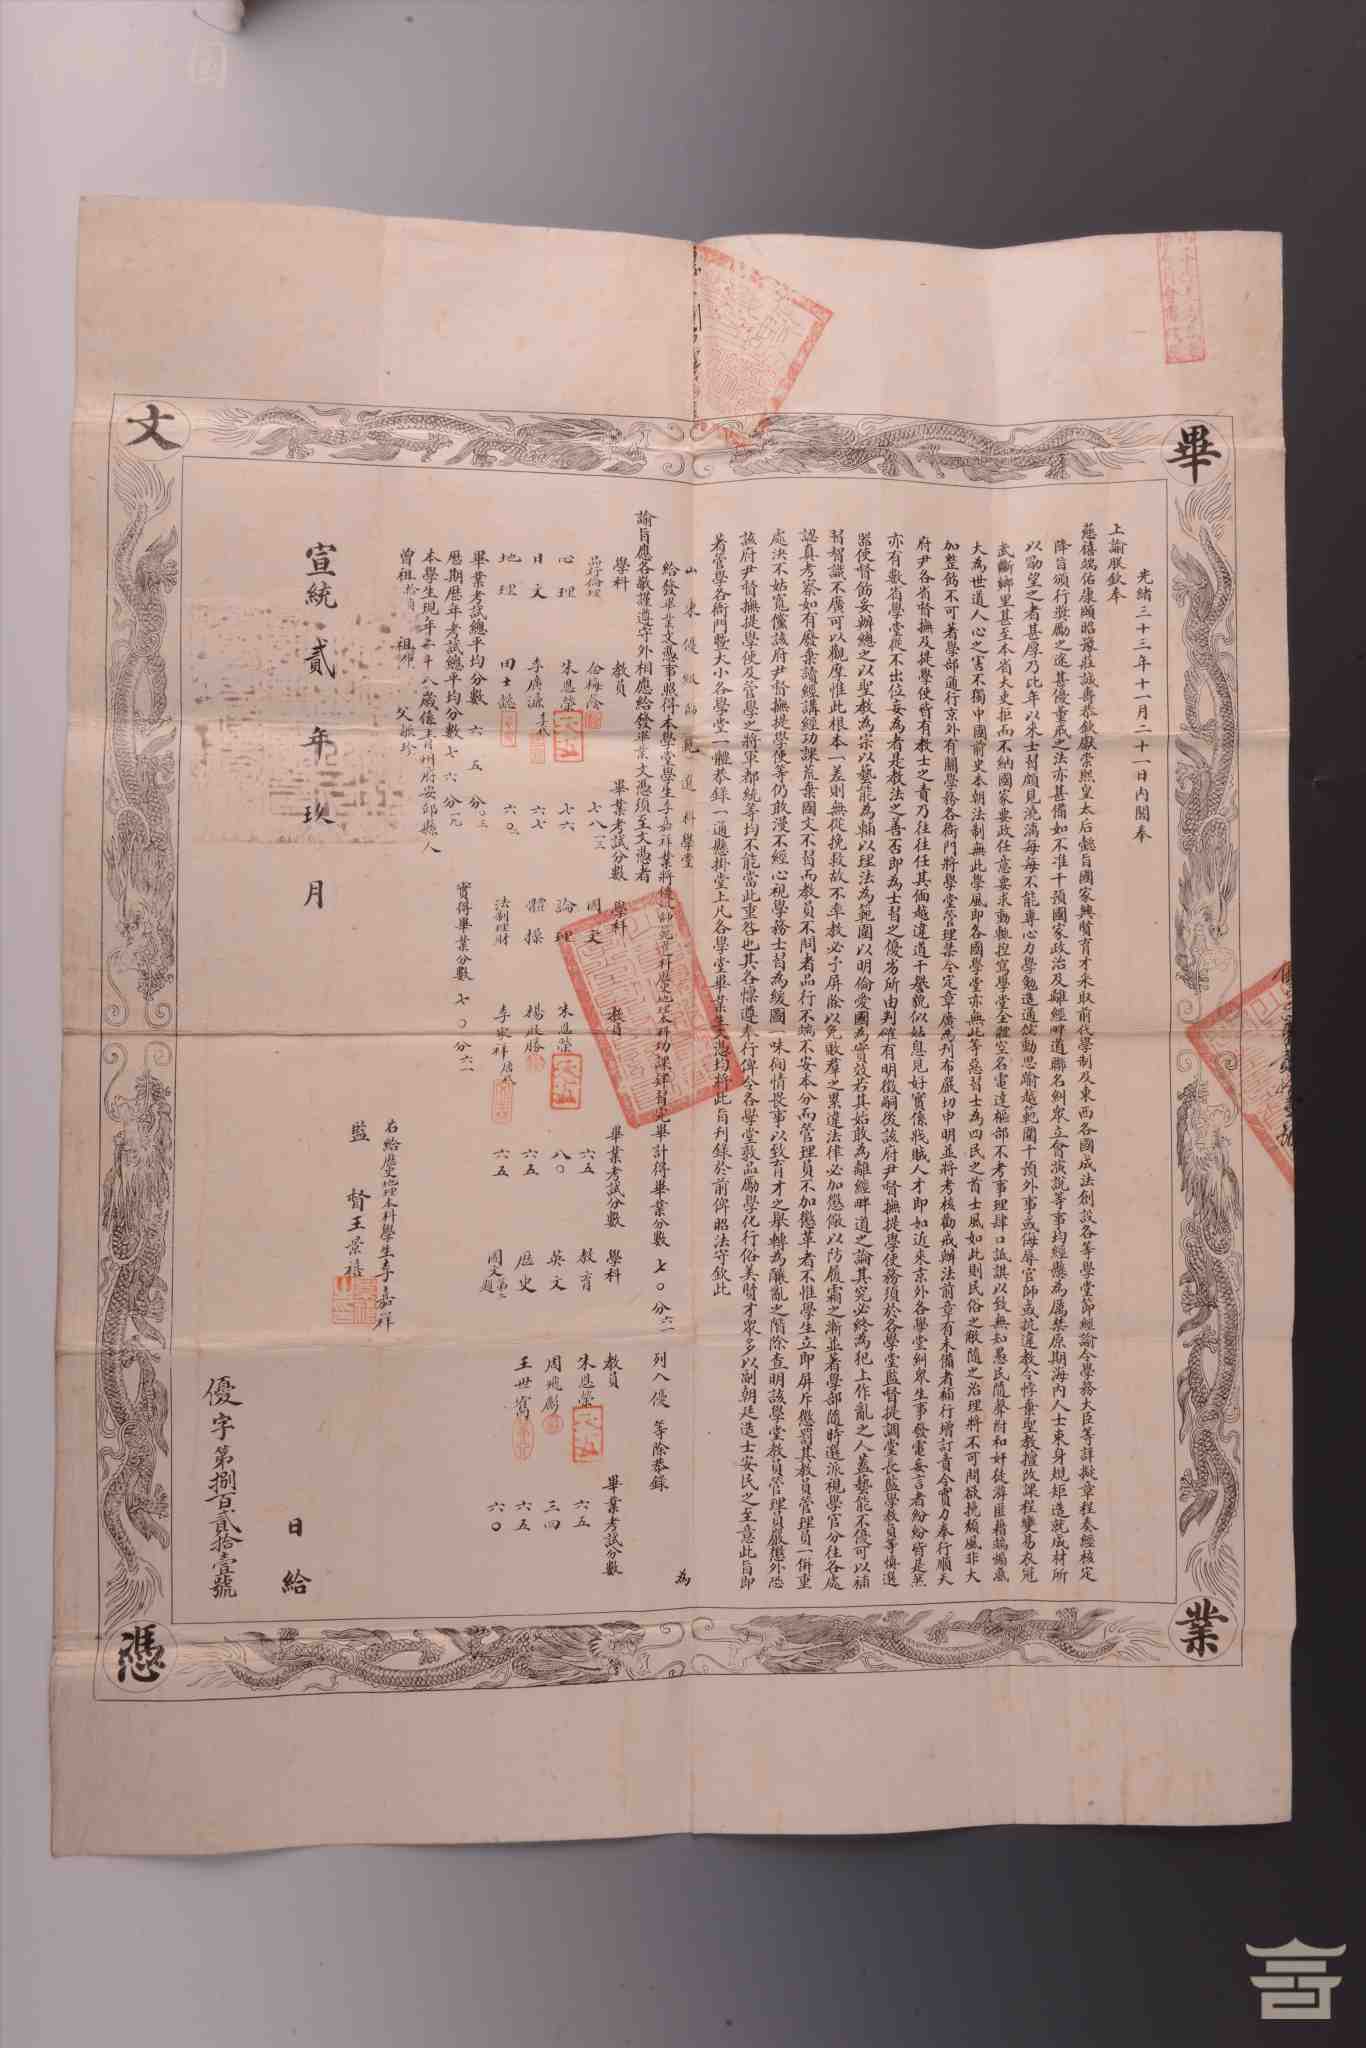 畢業文憑
光緒三十三年十一月二十一日內閣奉
上諭朕欽奉
慈禧端佑康頤昭豫莊誠壽恭欽獻崇熙皇太后懿旨國家興賢育才采取前代學制及東西各國成法創設各等學堂節經諭令學務大臣等詳擬章程奏經核定
降旨頒行獎勵之途甚優董戒之法亦甚備如不准干預國家政治及離經畔道聯名糾眾立會演說等事均經懸為厲禁原期海內人士束身規矩造就成材所
以勖望之者甚厚乃比年以來士習頗見澆漓每每不能專心力學勉造通儒動思踰越範圍干預外事或侮辱官師或抗違教令悖棄聖教擅改課程變易衣冠
武斷鄉里甚至本省大吏拒而不納國家要政任意要求動輒捏寫學堂全體空名電達樞部不考事理肆口詆諆以致無知愚民隨聲附和奸徒游匪藉端煽惑
大為世道人心之害不獨中國前史本朝法制無此學風即各國學堂亦無此等惡習士為四民之首士風如此則民俗之敝隨之治理將不可問欲挽頹風非大
加整飭不可著學部通行京外有關學務各衙門將學堂管理禁令定章廣為刊布嚴切申明並將考核勸戒辦法前章有未備者補行增訂責令實力奉行順天
府尹各省督撫及提學使皆有教士之責乃往往任其偭越違道干譽貌似姑息見好實係戕賊人才即如近來京外各學堂糾眾生事發電妄言者紛紛皆是然
亦有數省學堂從不出位妄為者是教法之善否即為士習之優劣所由判確有明徵嗣後該府尹督撫提學使務須於各學堂監督提調堂長監學教員等慎選
器使督飭妥辦總之以聖教為宗以藝能為輔以理法為範圍以明倫愛國為實效若其始敢為離經畔道之論其究必終為犯上作亂之人蓋藝能不優可以補
習智識不廣可以觀摩惟此根本一差則無從挽救故不率教必予屏除以免敗群之累違法律必加懲儆以防履霜之漸並著學部隨時選派視學官分往各處
認真考察如有廢棄讀經講經功課荒棄國文不習而教員不問者品行不端不安本分而管理員不加懲革者不惟學生立即屏斥懲罰其教員管理員一併重
處決不姑寬儻該府尹督撫提學使等仍敢漫不經心視學務士習為緩圖一味徇情畏事以致育才之舉轉為釀亂之階除查明該學堂教員管理員嚴懲外恐
該府尹督撫提學使及管學之將軍都統等均不能當此重咎也其各懍遵奉行俾令各學堂敦品勵學化行俗美賢才眾多以副朝廷造士安民之至意此旨即
著管學各衙門暨大小各學堂一體恭錄一通懸掛堂上凡各學堂畢業生文憑均將此旨刊錄於前俾昭法守欽此
山東優級師範選科學堂 為
給發畢業文憑事照得本學堂學生李嘉祥業將優級師範選科歷史地理本科功課肄習完畢計得畢業分數七〇分六一列入優等除恭錄
諭旨應各敬謹遵守外相應給發畢業文憑須至文憑者
學科 教員 畢業考試分數 學科 教員 畢業考試分數 學科 教員 畢業考試分數
國文 六五 教育 朱恩榮 六五
心理 朱恩榮 七六 論理 朱恩榮 八〇 英文 周飛彪 三四
日文 李廣濂 六七 體操 楊啟勝 六五 歷史 王世寯 六五
地理 田士懿 六〇 法制理財 李家祥 六五 六〇
畢業考試總平均分數 六五分〇三
歷期歷年考試總平均分數 七六分一九 實得畢業分數 七〇分六一
本學生現年二十八歲係青州府安邱縣人
曾祖 祖 父振珍
右給歷史地理本科學生李嘉祥
監督王景禧
宣統貳年玖月 日給
優字第捌百貳拾壹號